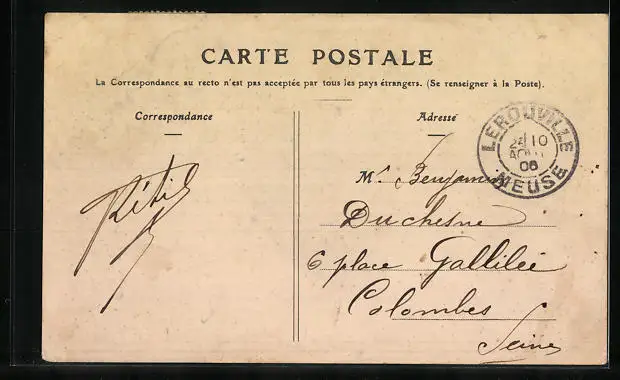 CARTE POSTALE
La Correspondance au recto n'est pas acceptée par tous les pays étrangers. (Se renseigner à la Poste).
Correspondance
Adresse
LEROUVILLE
10
06
MEUSE
Mr. Benjamin
Duchesne
6 place Gallilée
Colombes
Seine